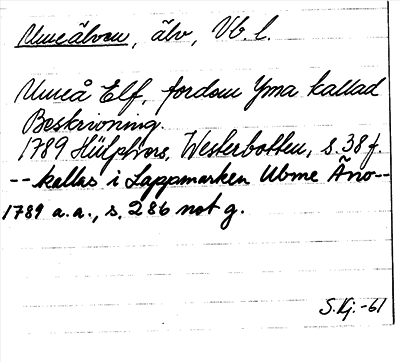 Umeälven, älv, Vb. l.
Umeå Elf, fordom Yma kallad
Beskrivning.
1789 Hülphers, Westerbotten, s. 38 f.
-- kallas i Lappmarken Ubme Äno--
1789 a.a., s. 286 not g.
S.Kj.-61